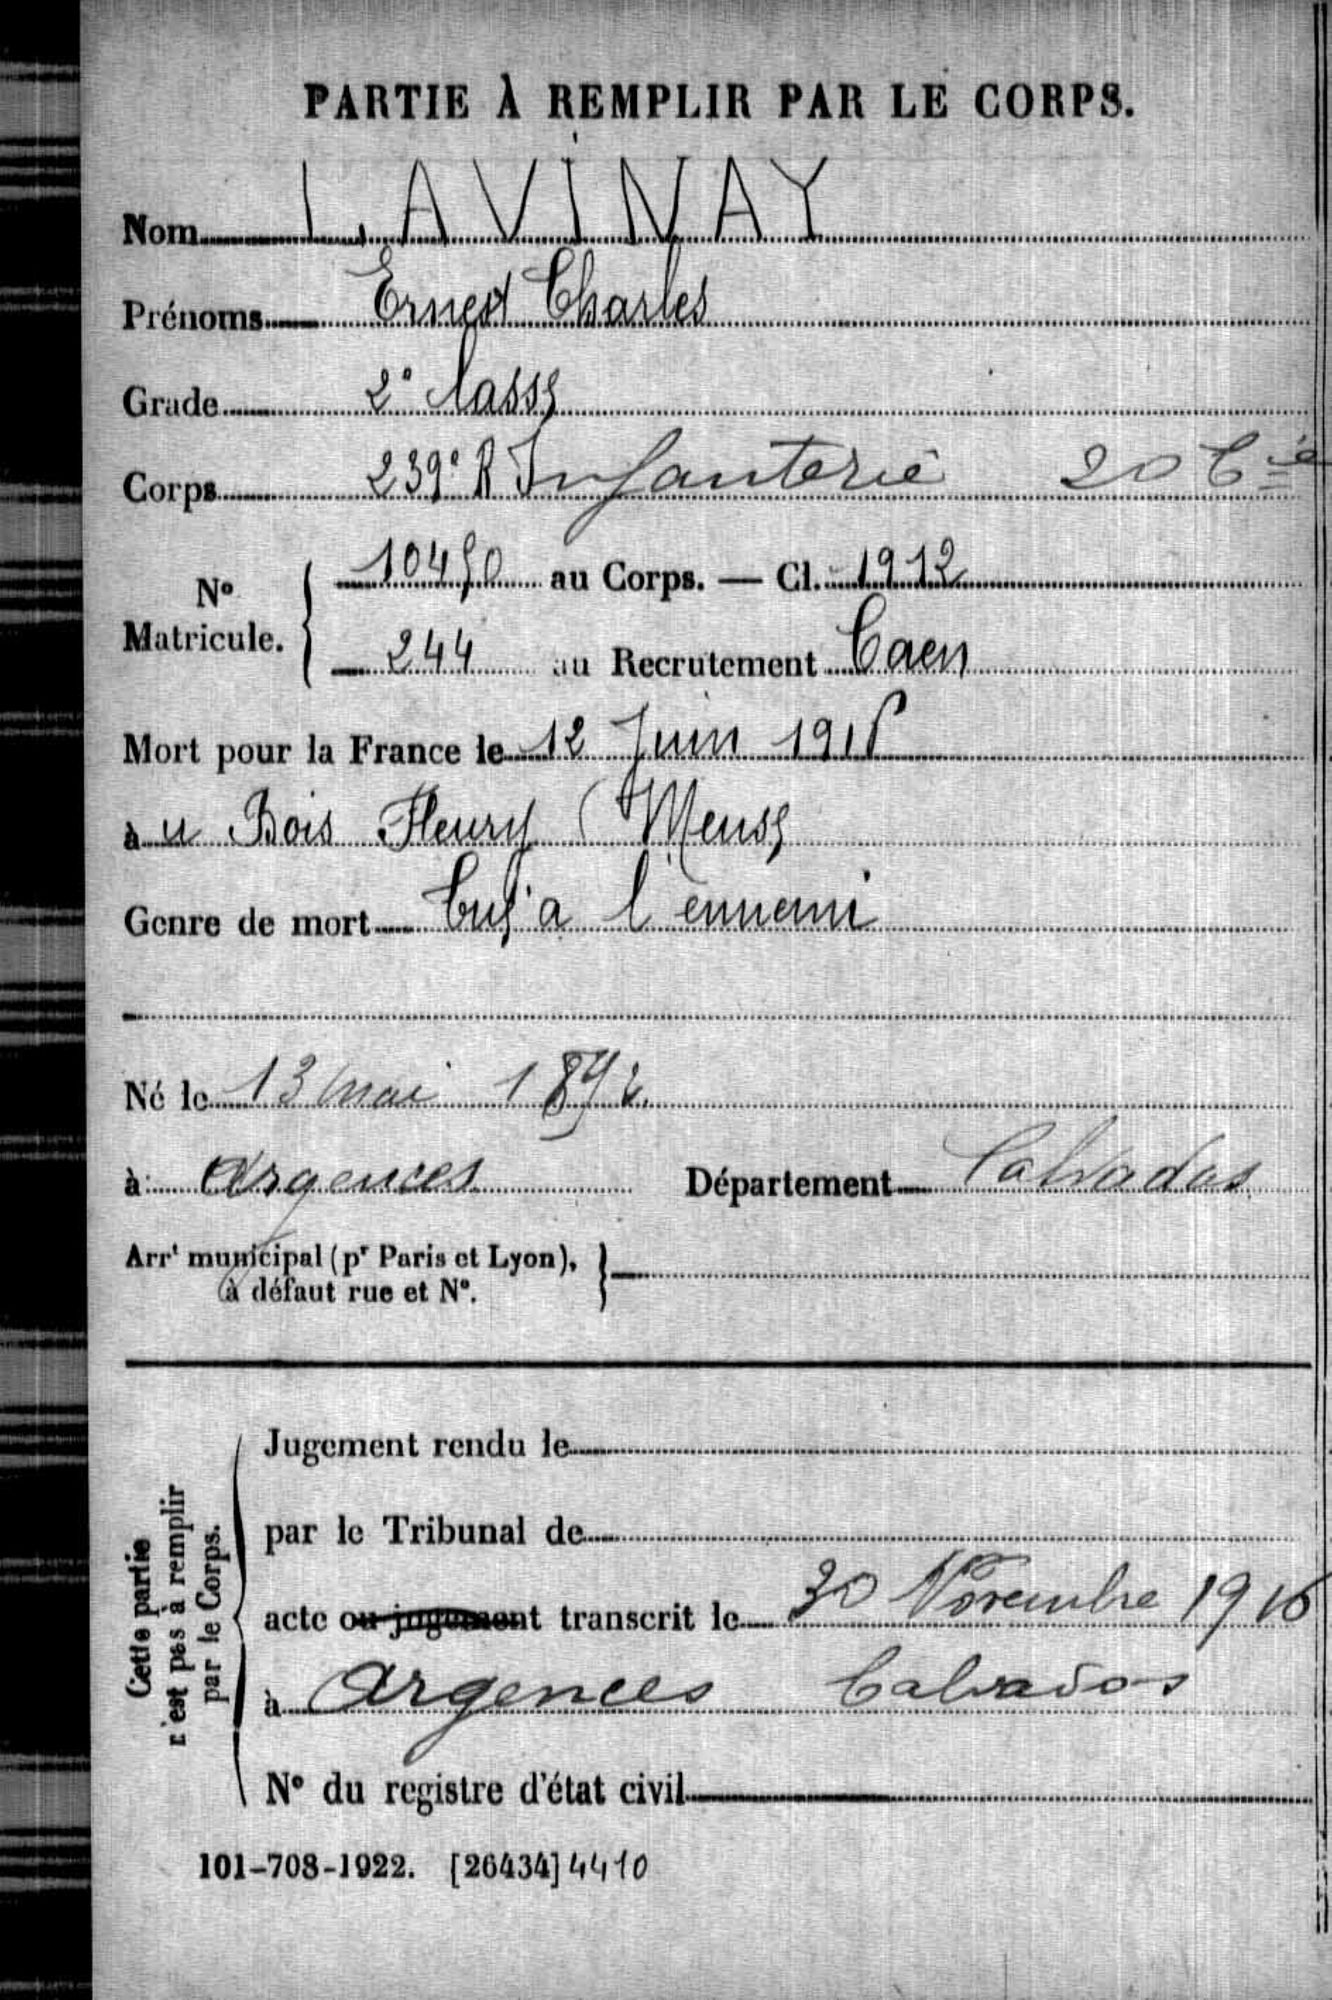 PARTIE À REMPLIR PAR LE CORPS.
Nom LAVINAY
Prénoms Ernest Charles
Grade 2e classe
Corps 239e R Infanterie 20 Cie
No Matricule. 10450 au Corps. — Cl. 1912
244 au Recrutement Caen
Mort pour la France le 12 Juin 1916
à u Bois Fleury (Meuse
Genre de mort Tué a l'ennemi
Né le 13 mai 1892
à Argences Département Calvados
Arrt municipal (pr Paris et Lyon),
à défaut rue et No.
Cette partie
n'est pas à remplir
par le Corps.
Jugement rendu le
par le Tribunal de
acte ou jugement transcrit le 30 Novembre 1916
à Argences Calvados
No du registre d'état civil
101-708-1922. [26434] 4410